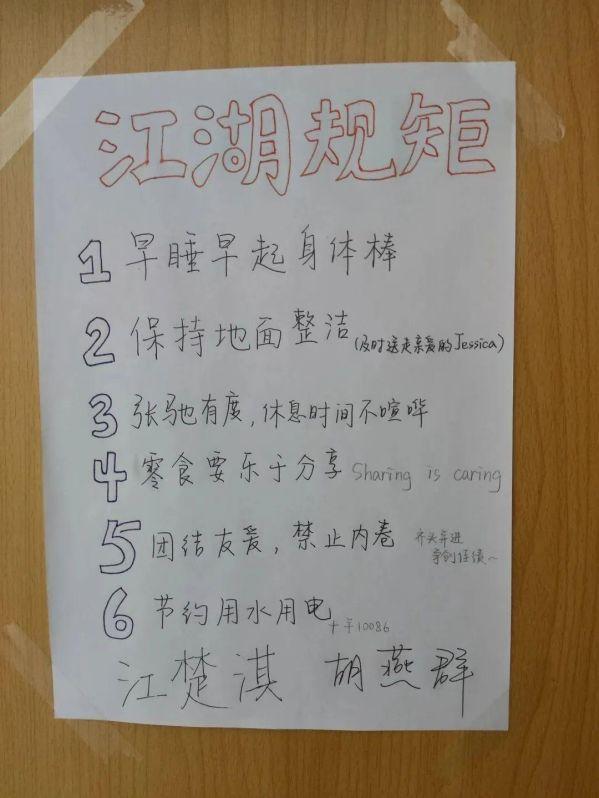 江湖规矩
1 早睡早起身体棒
2 保持地面整洁(及时送走亲爱的Jessica)
3 张驰有度,休息时间不喧哗
4 零食要乐于分享 Sharing is caring
5 团结友爱,禁止内卷 齐头并进
争创佳绩~
6 节约用水用电 10086
江楚淇 胡燕群